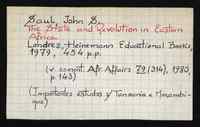 Saul, John S.
The State and Revolution in Eastern
Africa.
Londres, Heinemann Educational Books,
1979, 454 p.p.
(v. compt. Afr. Affairs 79 (314), 1980,
p. 143)
(Importantes estudos s/ Tanzania e Mozambi-
que)